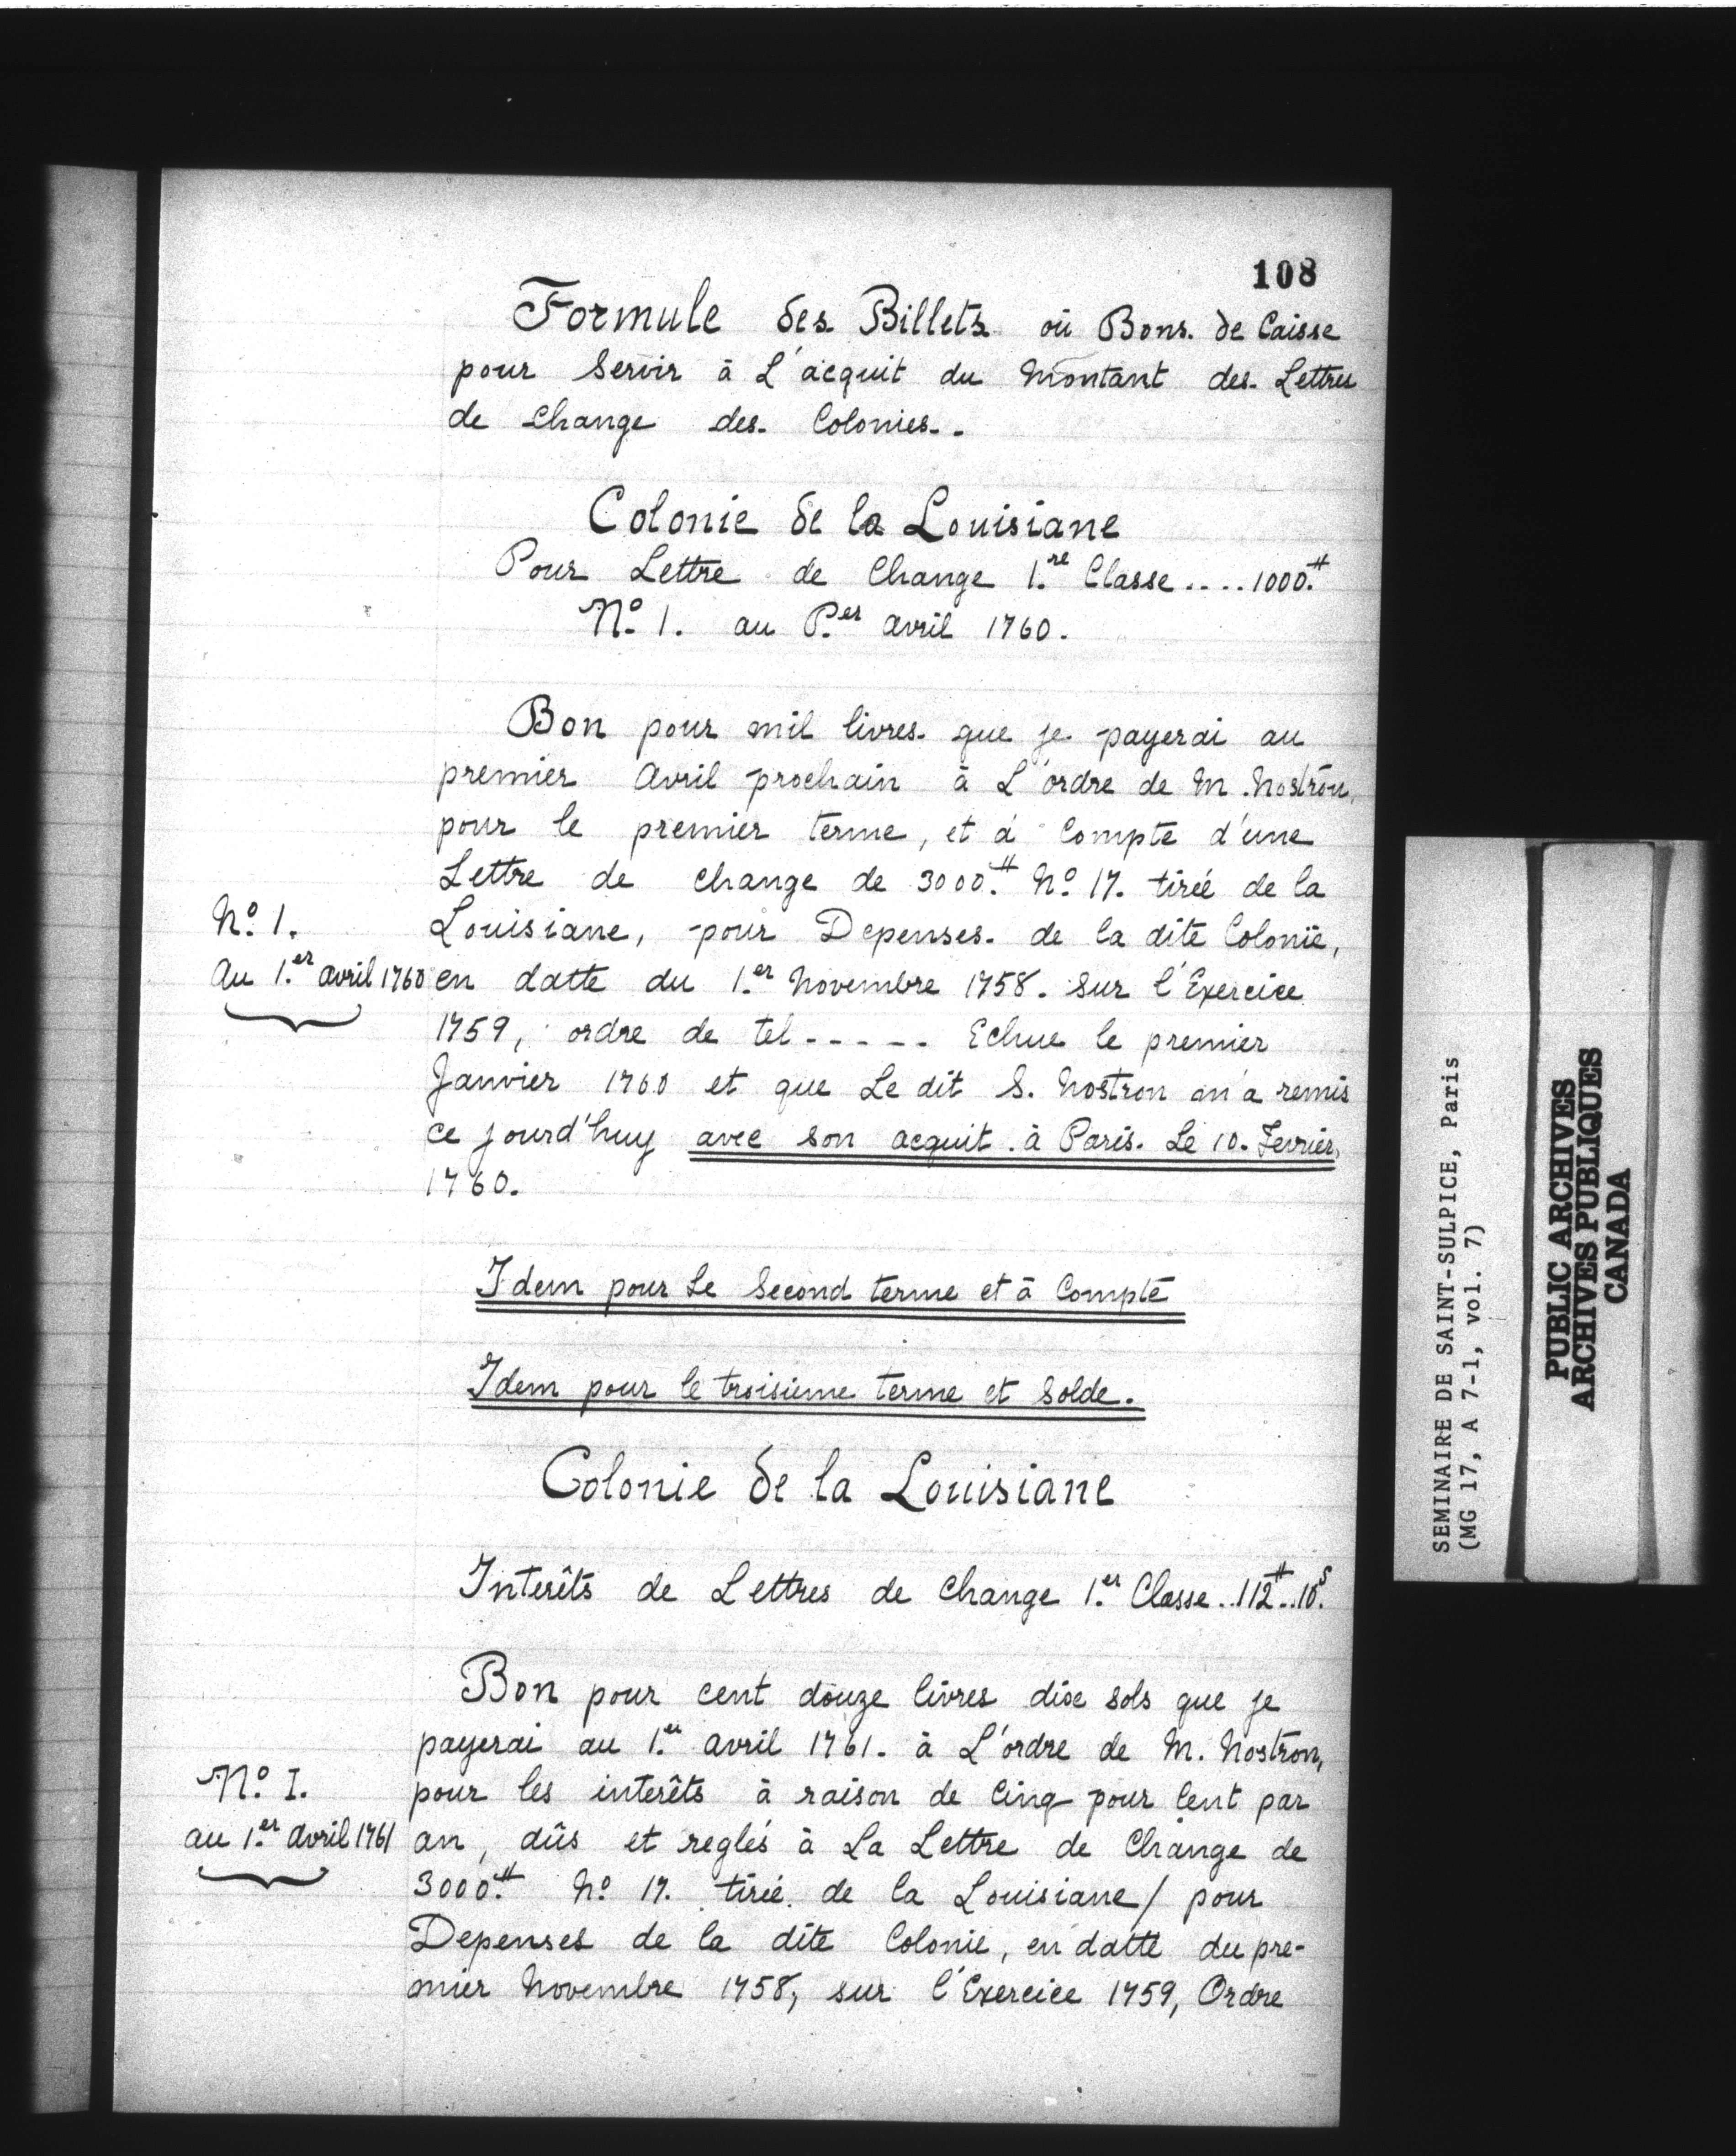 108
Formule des Billets où Bons de Caisse
pour Servir à L'acquit du Montant des Lettres
de Change des Colonies.
Colonie de la Louisiane
Pour Lettre de Change 1.re Classe .... 1000.#
N.o 1. au P.er avril 1760.
Bon pour mil livres que je payerai au
premier Avril prochain à L'ordre de M. Nostron,
pour le premier terme, et à Compte d'une
Lettre de change de 3000.# N.o 17. tirée de la
Louisiane, pour Depenses de la dite Colonie,
N.o 1.
Au 1.er avril 1760
en datte du 1.er Novembre 1758. sur l'Exercice
1759, ordre de tel ----- Echue le premier
Janvier 1760 et que Le dit S. Nostron m'a remis
ce jourd'huy avec son acquit. à Paris. Le 10. Fevrier,
1760.
Idem pour Le Second terme et à Compte
Idem pour le troisieme terme et Solde.
Colonie de la Louisiane
Interêts de Lettres de Change 1.er Classe .. 112.# .. 10.s
Bon pour cent douze livres dix sols que je
payerai au 1.er avril 1761. à L'ordre de M. Nostron,
N.o I.
au 1.er Avril 1761
pour les interêts à raison de Cinq pour Cent par
an, dûs et reglés à La Lettre de Change de
3000.# N.o 17. tirée de la Louisiane / pour
Depenses de la dite Colonie, en datte du pre-
mier Novembre 1758, sur l'Exercice 1759, Ordre
SEMINAIRE DE SAINT-SULPICE, Paris
(MG 17, A 7-1, vol. 7)
PUBLIC ARCHIVES
ARCHIVES PUBLIQUES
CANADA